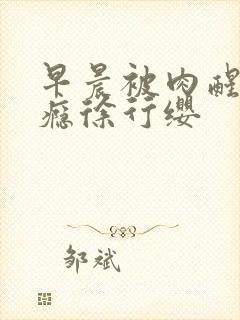 早晨被肉醒
瘾徐行缨
邹斌